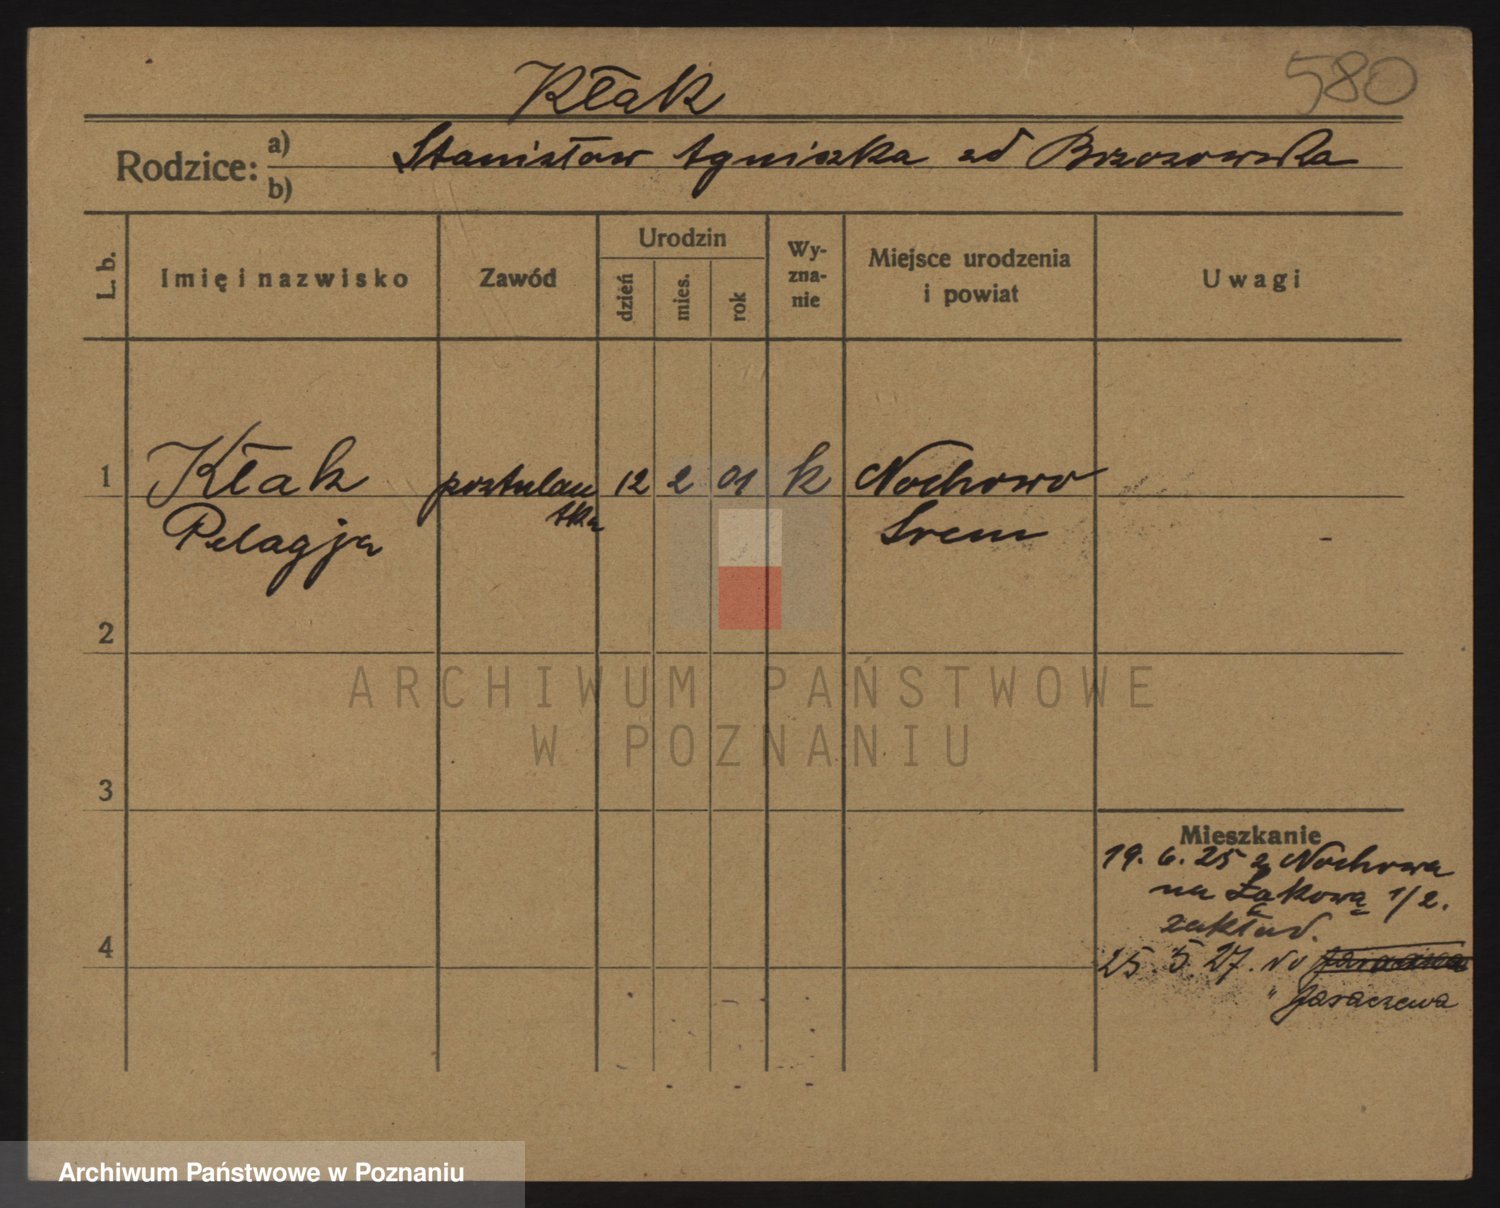 580
Kłak
Rodzice: a) Stanisław Agniszka zd Brzozowska
b)
L. b.
Imię i nazwisko
Zawód
Urodzin
dzień
mies.
rok
Wy-
zna-
nie
Miejsce urodzenia
i powiat
Uwagi
1 Kłak postulan 12 2 01 k Nochowo
Pelagja tka Śrem
2
ARCHIWUM PAŃSTWOWE
W POZNANIU
3
Mieszkanie
19. 6. 25 z Nochowa
na Łąkową 1/2.
zakład.
4
25. 5. 27. do
" Jaraczewa
Archiwum Państwowe w Poznaniu